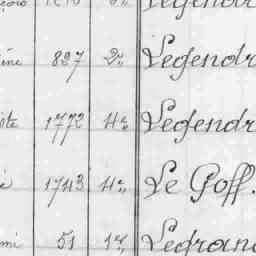 Legendr
ine 827 2e Legendr
ste 1772 4e Legendr
é 1743 4e Le Goff.
mi 51 1e Legrand